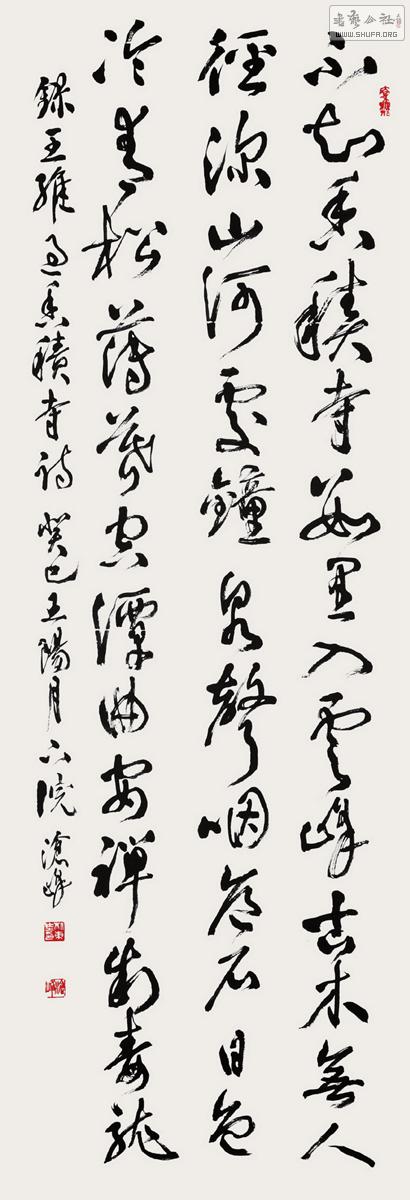 書藝公社
WWW.SHUFA.ORG
不知香積寺數里入雲峰古木無人
徑深山何處鐘泉聲咽危石日色
冷青松薄暮空潭曲安禪制毒龍
錄王維過香積寺詩 癸巳正陽月下浣 滄峰